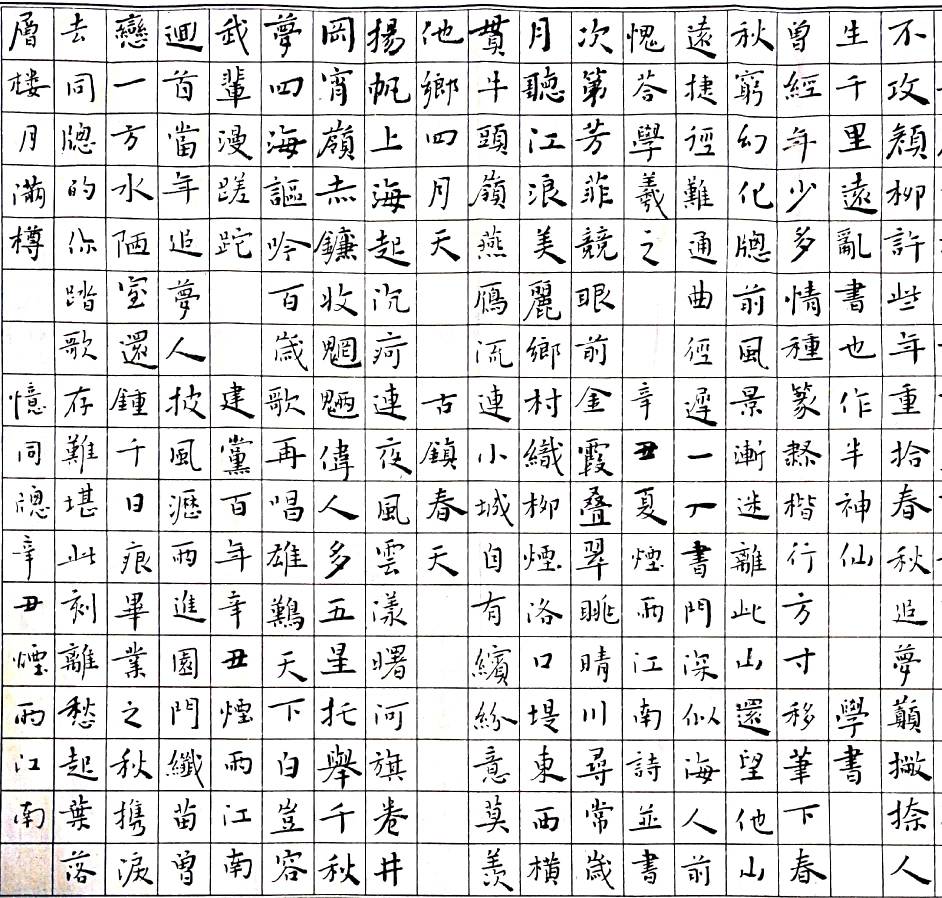 不攻顏柳許些年重拾春秋追夢巔撇捺人
生千里遠亂書也作半神仙 學書
曾經年少多情種篆隸楷行方寸移筆下春
秋窮幻化牕前風景漸迷離此山還望他山
遠捷徑難通曲徑遲一丁書門深似海人前
愧答學羲之 辛丑夏煙雨江南詩並書
次第芳菲競眼前金霞叠翠眺晴川尋常歲
月聽江浪美麗鄉村織柳煙洛口堤東西橫
貫牛頭嶺燕鴈流連小城自有繽紛意莫羨
他鄉四月天 古鎮春天
揚帆上海起沉疴連夜風雲漾曙河旗卷井
岡宵嶺赤鐮收魍魎偉人多五星托舉千秋
夢四海謳吟百歲歌再唱雄鷄天下白豈容
武輩漫蹉跎 建黨百年辛丑煙雨江南
迴首當年追夢人披風瀝雨進園門纖苗曾
戀一方水陋室還鍾千日痕畢業之秋攜淚
去同牕的你踏歌存難堪此刻離愁起葉落
層楼月滿樽 憶同牕辛丑煙雨江南